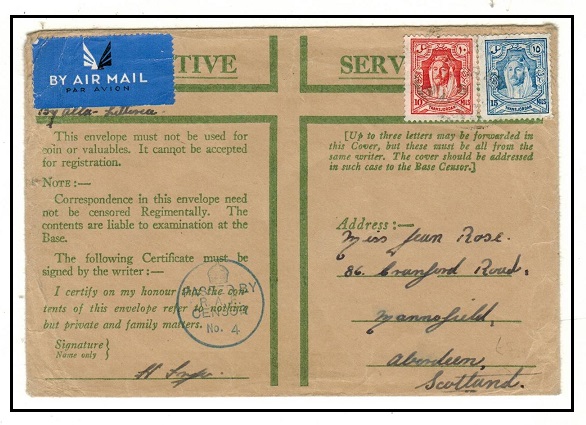 BY AIR MAIL
PAR AVION
TIVE
SERV
١٠
١٥
10 MILS
TRANSJORDAN
15 MILS
TRANSJORDAN
This envelope must not be used for
coin or valuables. It cannot be accepted
for registration.
NOTE:—
Correspondence in this envelope need
not be censored Regimentally. The
contents are liable to examination at the
Base.
The following Certificate must be
signed by the writer :—
I certify on my honour that the con-
tents of this envelope refer to nothing
but private and family matters.
Signature }
Name only
PASSED BY
R.A.F.
CENSOR
No. 4
[Up to three letters may be forwarded in
this Cover, but these must be all from the
same writer. The cover should be addressed
in such case to the Base Censor.]
Address :—
Miss Jean Rose.
86. Cranford Road.
Mannofield,
Aberdeen,
Scotland.